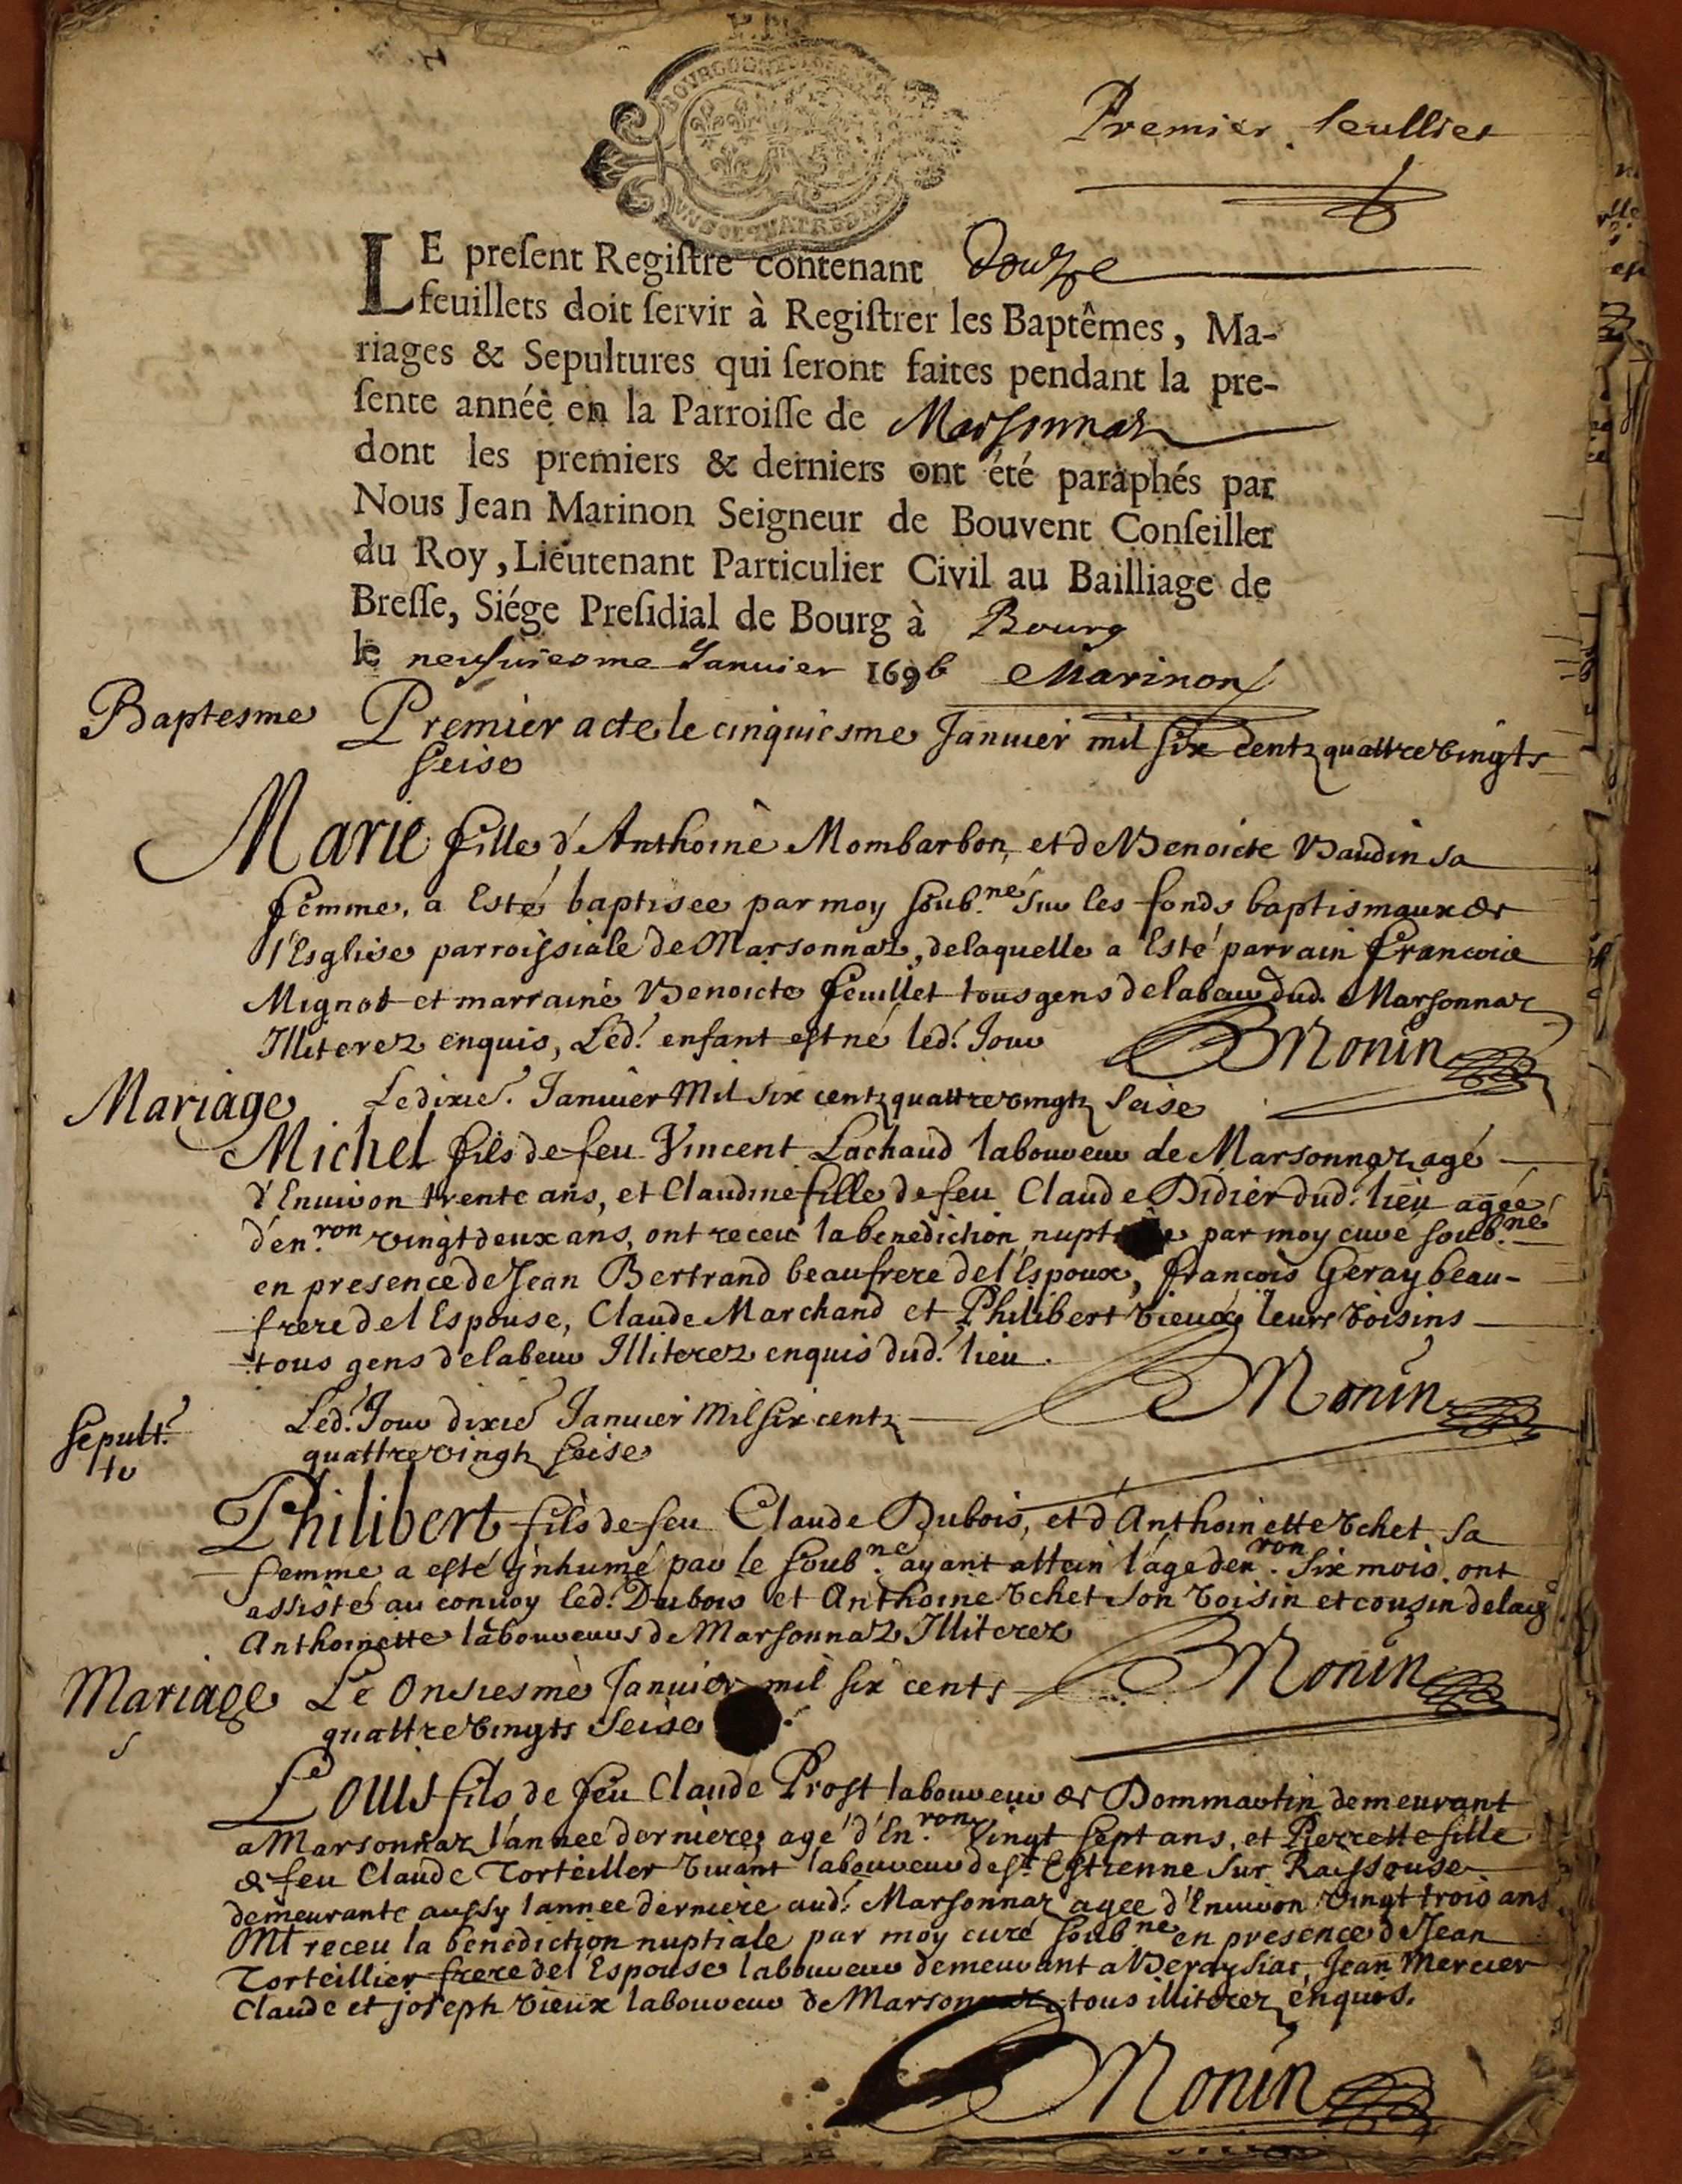 Premier feulliet
LE preſent Regiſtre contenant Douze
feuillets doit ſervir à Regiſtrer les Baptêmes, Ma-
riages & Sepultures qui ſeront faites pendant la pre-
ſente année en la Parroiſſe de Marsonnaz
dont les premiers & derniers ont été paraphés par
Nous Jean Marinon Seigneur de Bouvent Conſeiller
du Roy, Lieutenant Particulier Civil au Bailliage de
Breſſe, Siége Preſidial de Bourg à Bourg
le neufuiesme Januier 1696 Marinon
Baptesme Premier acte le cinquiesme Januier mil six centz quattre vingts
seise
Marie fille d'Anthoine Mombarbon, et de Benoicte Baudin sa
femme, a Esté baptisee par moy soub.né sur les fonds baptismaux de
l'Esglise parroissiale de Marsonnaz, de laquelle a Esté parrain francois
Mignot et marraine Benoicte feuillet tous gens de labeur dud. Marsonnaz
Illiterez enquis, Led. enfant est né led. Jour BMonin
Mariage Le dixie. Januier Mil six centz quattre vingtz seise
Michel fils de feu Vincent Lachaud laboureur de Marsonnaz agé
d'Enuiron trente ans, et Claudine fille de feu Claude Didier dud. lieu agée
d'en.ron vingt deux ans, ont receu la benediction nupt par moy curé soub.né
en presence de Jean Bertrand beaufrere de l'Espoux, francois Geray beau-
frere de l Espouse, Claude Marchand et Philibert vieux leurs voisins
tous gens de labeur Illiterez enquis dud. lieu. BMonin
sepult.
re
Led. Jour dixie Januier Mil six centz
quattre vingtz seise
Philibert fils de feu Claude Dubois, et d'Anthoinette vchet sa
femme a esté inhumé par le soub.né ayant attain l'áge d'en.ron six mois, ont
assisté au conuoy led. Dubois et Anthoine vchet son voisin et cousin de lad
Anthoinette laboureurs de Marsonnaz Illiterez BMonin
Mariage Le Onsiesme Januier mil six cents
quattre vingts seise
Louis fils de feu Claude Prost laboureur de Dommartin demeurant
a Marsonnaz l'annee derniere, agé d'En.ron vingt sept ans, et Pierrette fille
de feu Claude Torteiller viuant laboureur de St Estienne sur Raissouse
demeurante aussy l annee derniere aud. Marsonnaz agee d'Enuiron vingt trois ans
Ont receu la benediction nuptiale par moy curé soub né en presence de Jean
Torteillier frere de l Espouse laboureur demeurant a Beraysiat, Jean Mercier
Claude et joseph vieux laboureur de Marsonnaz, tous illiterez enquis.
BMonin